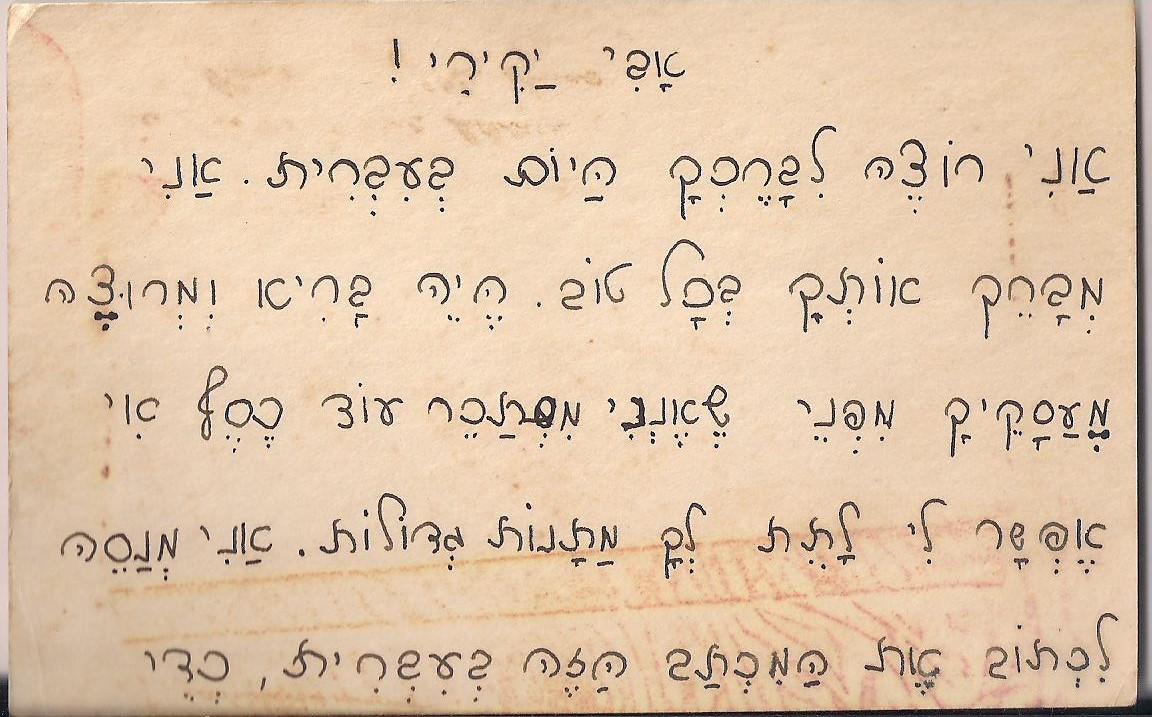 אָבִי יַקִּירִי !
אַנִי רוֹצֶה לְבָרֶכְךָ הַיוֹם בְּעִבְרִית. אַנִי
מְבָרֵךְ אוֹתְךָ בְּכָל טוֹב. הֱיֵה בָּרִיא וְמְרוּצֶה
מֶעַסָקֵיךָ מִפְּנֵי שֶׁאֶנְנִי מִשְׂתַּכֵּר עוֹד כֶּסֶף אִי
אֶפְשָׁר לִי לָתֵת לְךָ מַתָנוֹת גְדוֹלוֹת. אַנִי מְנַסֶה
לִכְתוֹב אֶת הַמִכְתַב הַזֶה בְּעִבְרִית, כְּדֵי